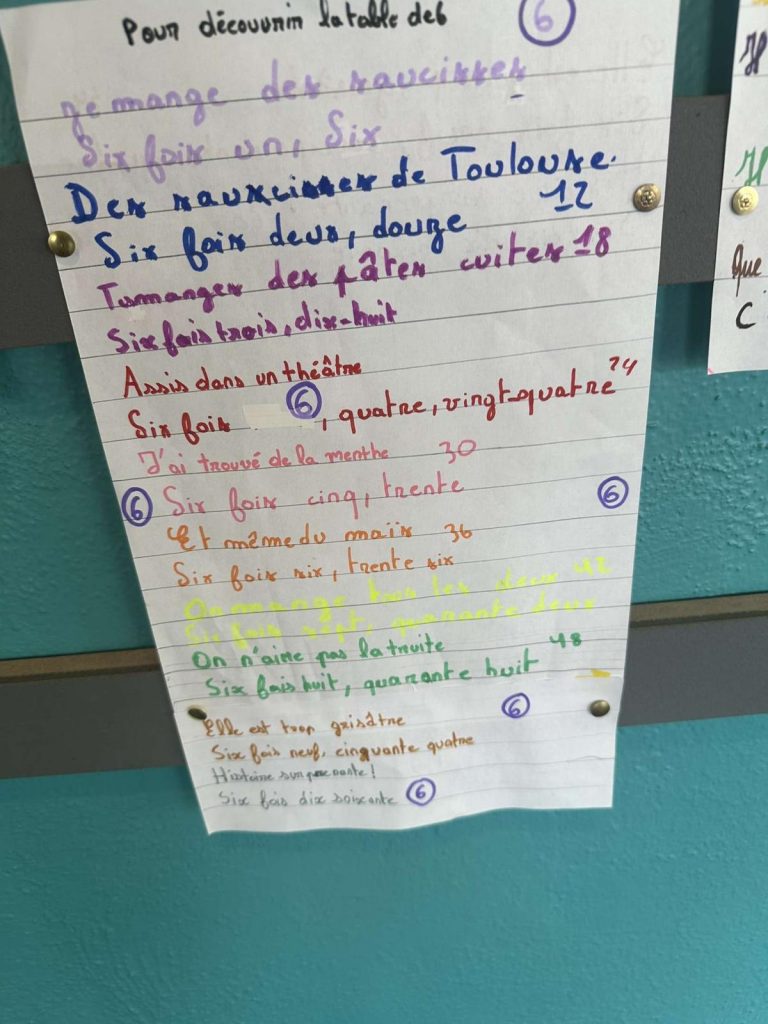 Pour découvrir la table de 6 6
Je mange des saucisses
Six fois un, Six
Des sauxcisses de Toulouse.
12
Six fois deux, douze
Tu manges des pâtes cuites 18
Six fois trois, dix-huit
Assis dans un théâtre
24
Six fois 6, quatre, vingt-quatre
J'ai trouvé de la menthe 30
6 Six fois cinq, trente 6
Et même du maïs 36
Six fois six, trente six
On mange tous les deux 42
Six fois sept, quarante deux
On n'aime pas la truite 48
Six fois huit, quarante huit
Elle est trop grisâtre 6
Six fois neuf, cinquante quatre
Histoire surprenante!
Six fois dix soixante 6
Que
C